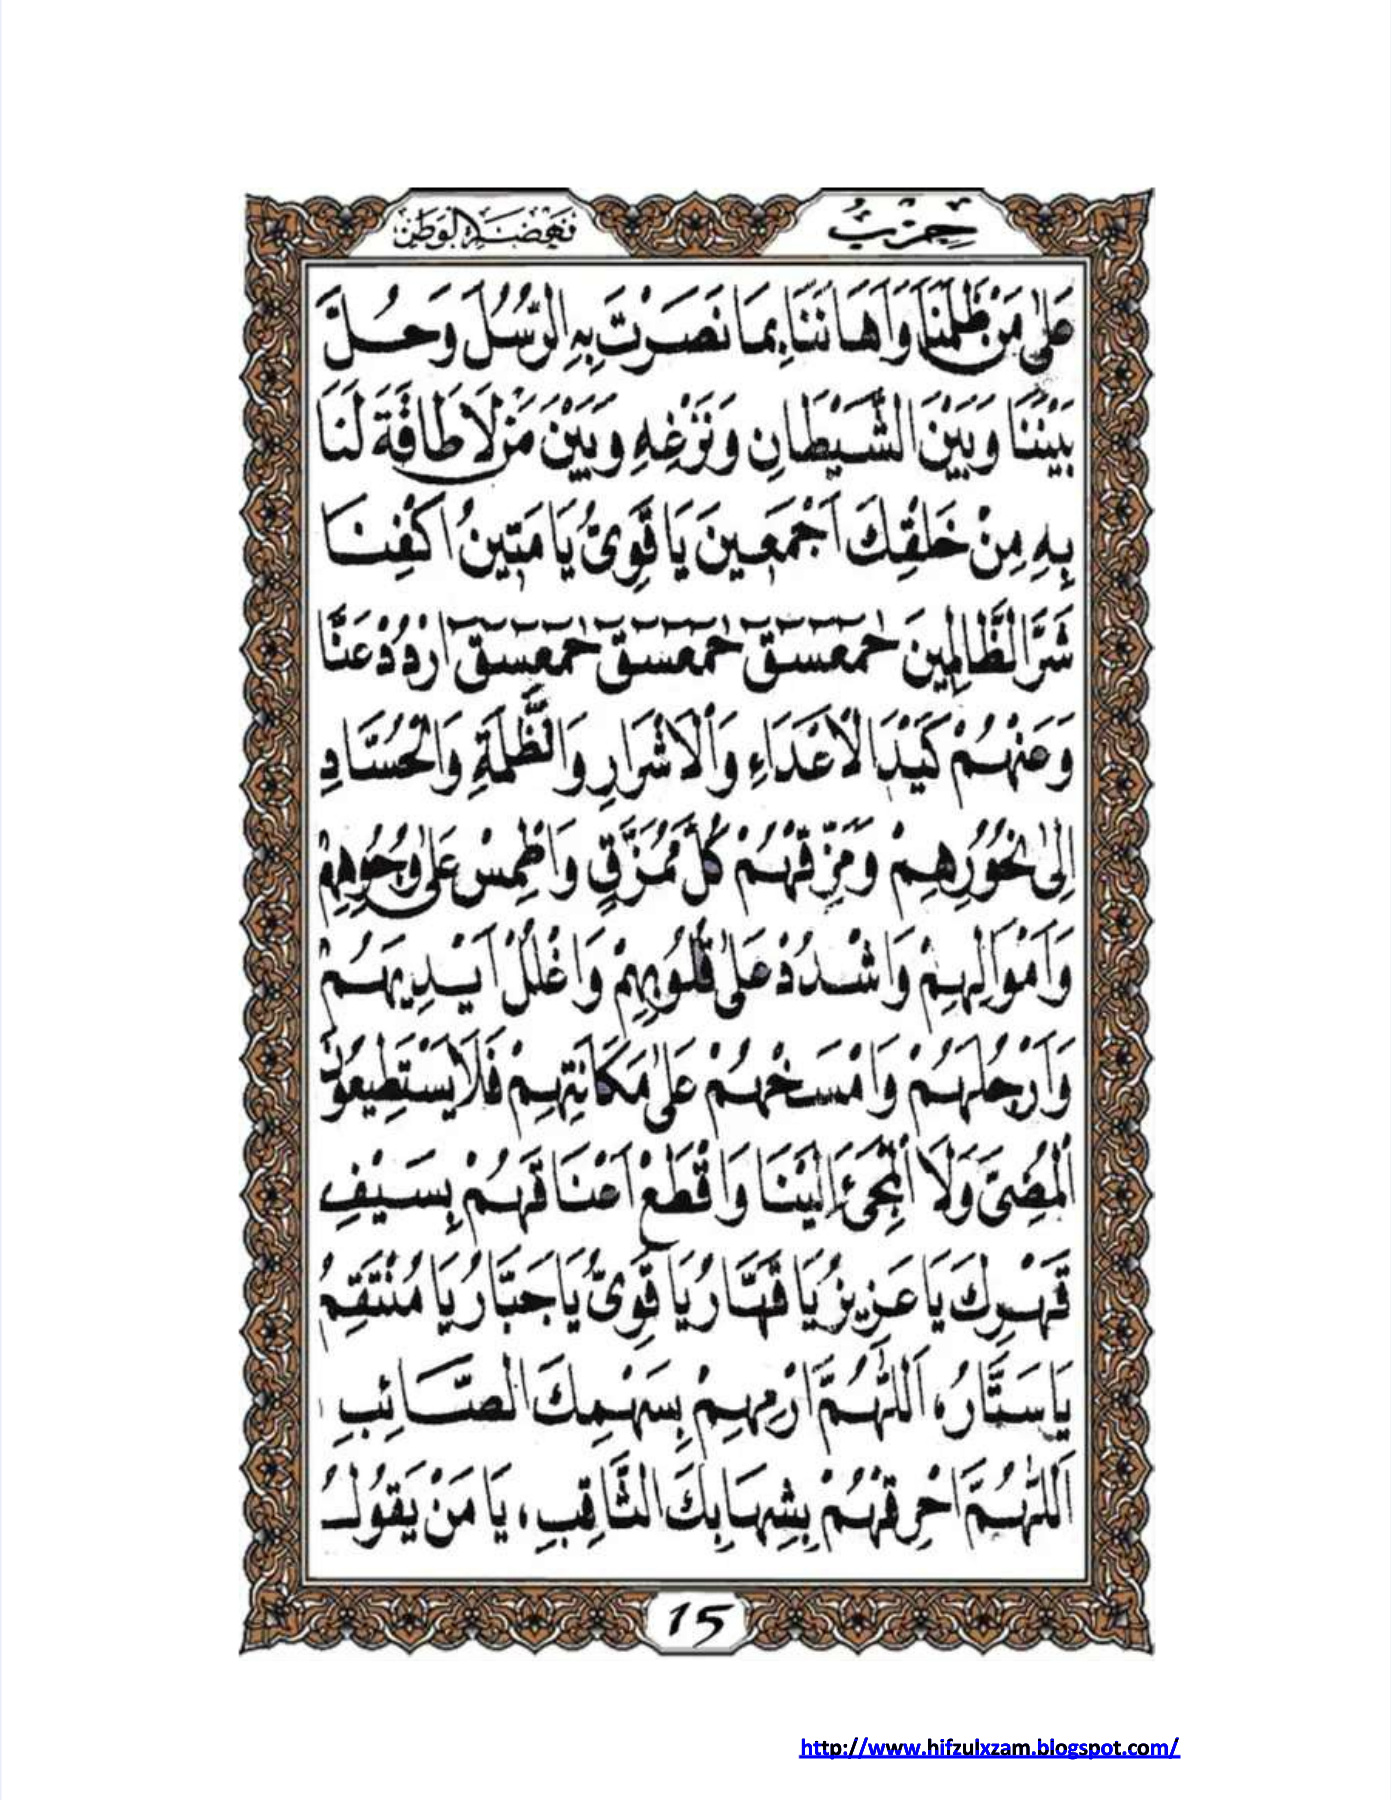 حِزْبُ نَهْضَةِ الْوَطَنْ
عَلَى مَنْ ظَلَمَنَا وَاَهَانَنَا بِمَا نَصَرْتَ بِهِ الرُّسُلَ وَحُلْ
بَيْنَنَا وَبَيْنَ الشَّيْطَانِ وَنَزْغِهِ وَبَيْنَ مَنْ لَا طَاقَةَ لَنَا
بِهِ مِنْ خَلْقِكَ اَجْمَعِينَ يَا قَوِىُّ يَا مَتِينُ اكْفِنَا
شَرَّ الظَّالِمِينَ حٰمٓعٓسٓقٓ حٰمٓعٓسٓقٓ حٰمٓعٓسٓقٓ ارْدُدْ عَنَّا
وَعَنْهُمْ كَيْدَ الْاَعْدَاءِ وَالْاَشْرَارِ وَالظَّلَمَةِ وَالْحُسَّادِ
اِلَى نُحُوْرِهِمْ وَمَزِّقْهُمْ كُلَّ مُمَزَّقٍ وَاطْمِسْ عَلَى وُجُوْهِهِمْ
وَاَمْوَالِهِمْ وَاشْدُدْ عَلَى قُلُوْبِهِمْ وَاغْلُلْ اَيْدِيَهُمْ
وَاَرْجُلَهُمْ وَامْسَخْهُمْ عَلَى مَكَانَتِهِمْ فَلَا يَسْتَطِيعُوْنَ
الْمُضِىَّ وَلَا الْمَجِىْءَ اِلَيْنَا وَاقْطَعْ اَعْنَاقَهُمْ بِسَيْفِ
قَهْرِكَ يَا عَزِيزُ يَا قَهَّارُ يَا قَوِىُّ يَا جَبَّارُ يَا مُنْتَقِمُ
يَا سَتَّارُ، اَللّٰهُمَّ ارْمِهِمْ بِسَهْمِكَ الصَّائِبِ
اَللّٰهُمَّ احْرِقْهُمْ بِشِهَابِكَ الثَّاقِبِ، يَا مَنْ يَقُولُ
15
http://www.hifzulxzam.blogspot.com/